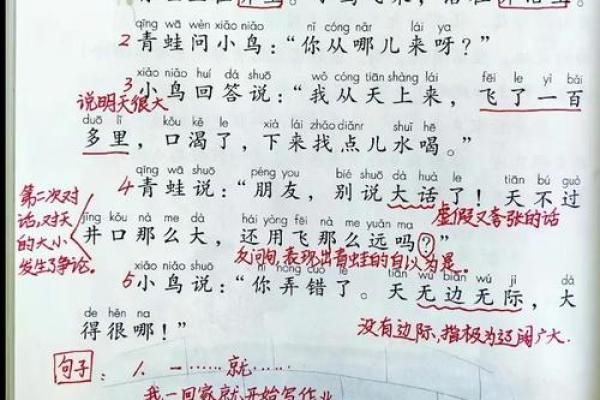 qīng wā wèn xiǎo niǎo nǐ cóng nǎr lái ya
2 青蛙问小鸟：“你从哪儿来呀？”
xiǎo niǎo huí dá shuō wǒ cóng tiān shàng lái fēi le yì bǎi
3 小鸟回答说：“我从天上来，飞了一百
说明天很大
duō lǐ kǒu kě le xià lái zhǎo diǎnr shuǐ hē
多里，口渴了，下来找点儿水喝。”
qīng wā shuō péng you bié shuō dà huà le tiān bú guò
4 青蛙说：“朋友，别说大话了！天不过
虚假又夸张的话
第二次对
话，对天
的大小
发生了争论。
jǐng kǒu nà me dà hái yòng fēi nà me yuǎn ma
井口那么大，还用飞那么远吗？”
反问句，表现出青蛙的自以为是。
xiǎo niǎo shuō nǐ nòng cuò le tiān wú biān wú jì dà
5 小鸟说：“你弄错了。天无边无际，大
de hěn na
得很哪！”
没有边际，指极为辽阔广大.
句子： 1. 一……就……
我一回家就开始写作业